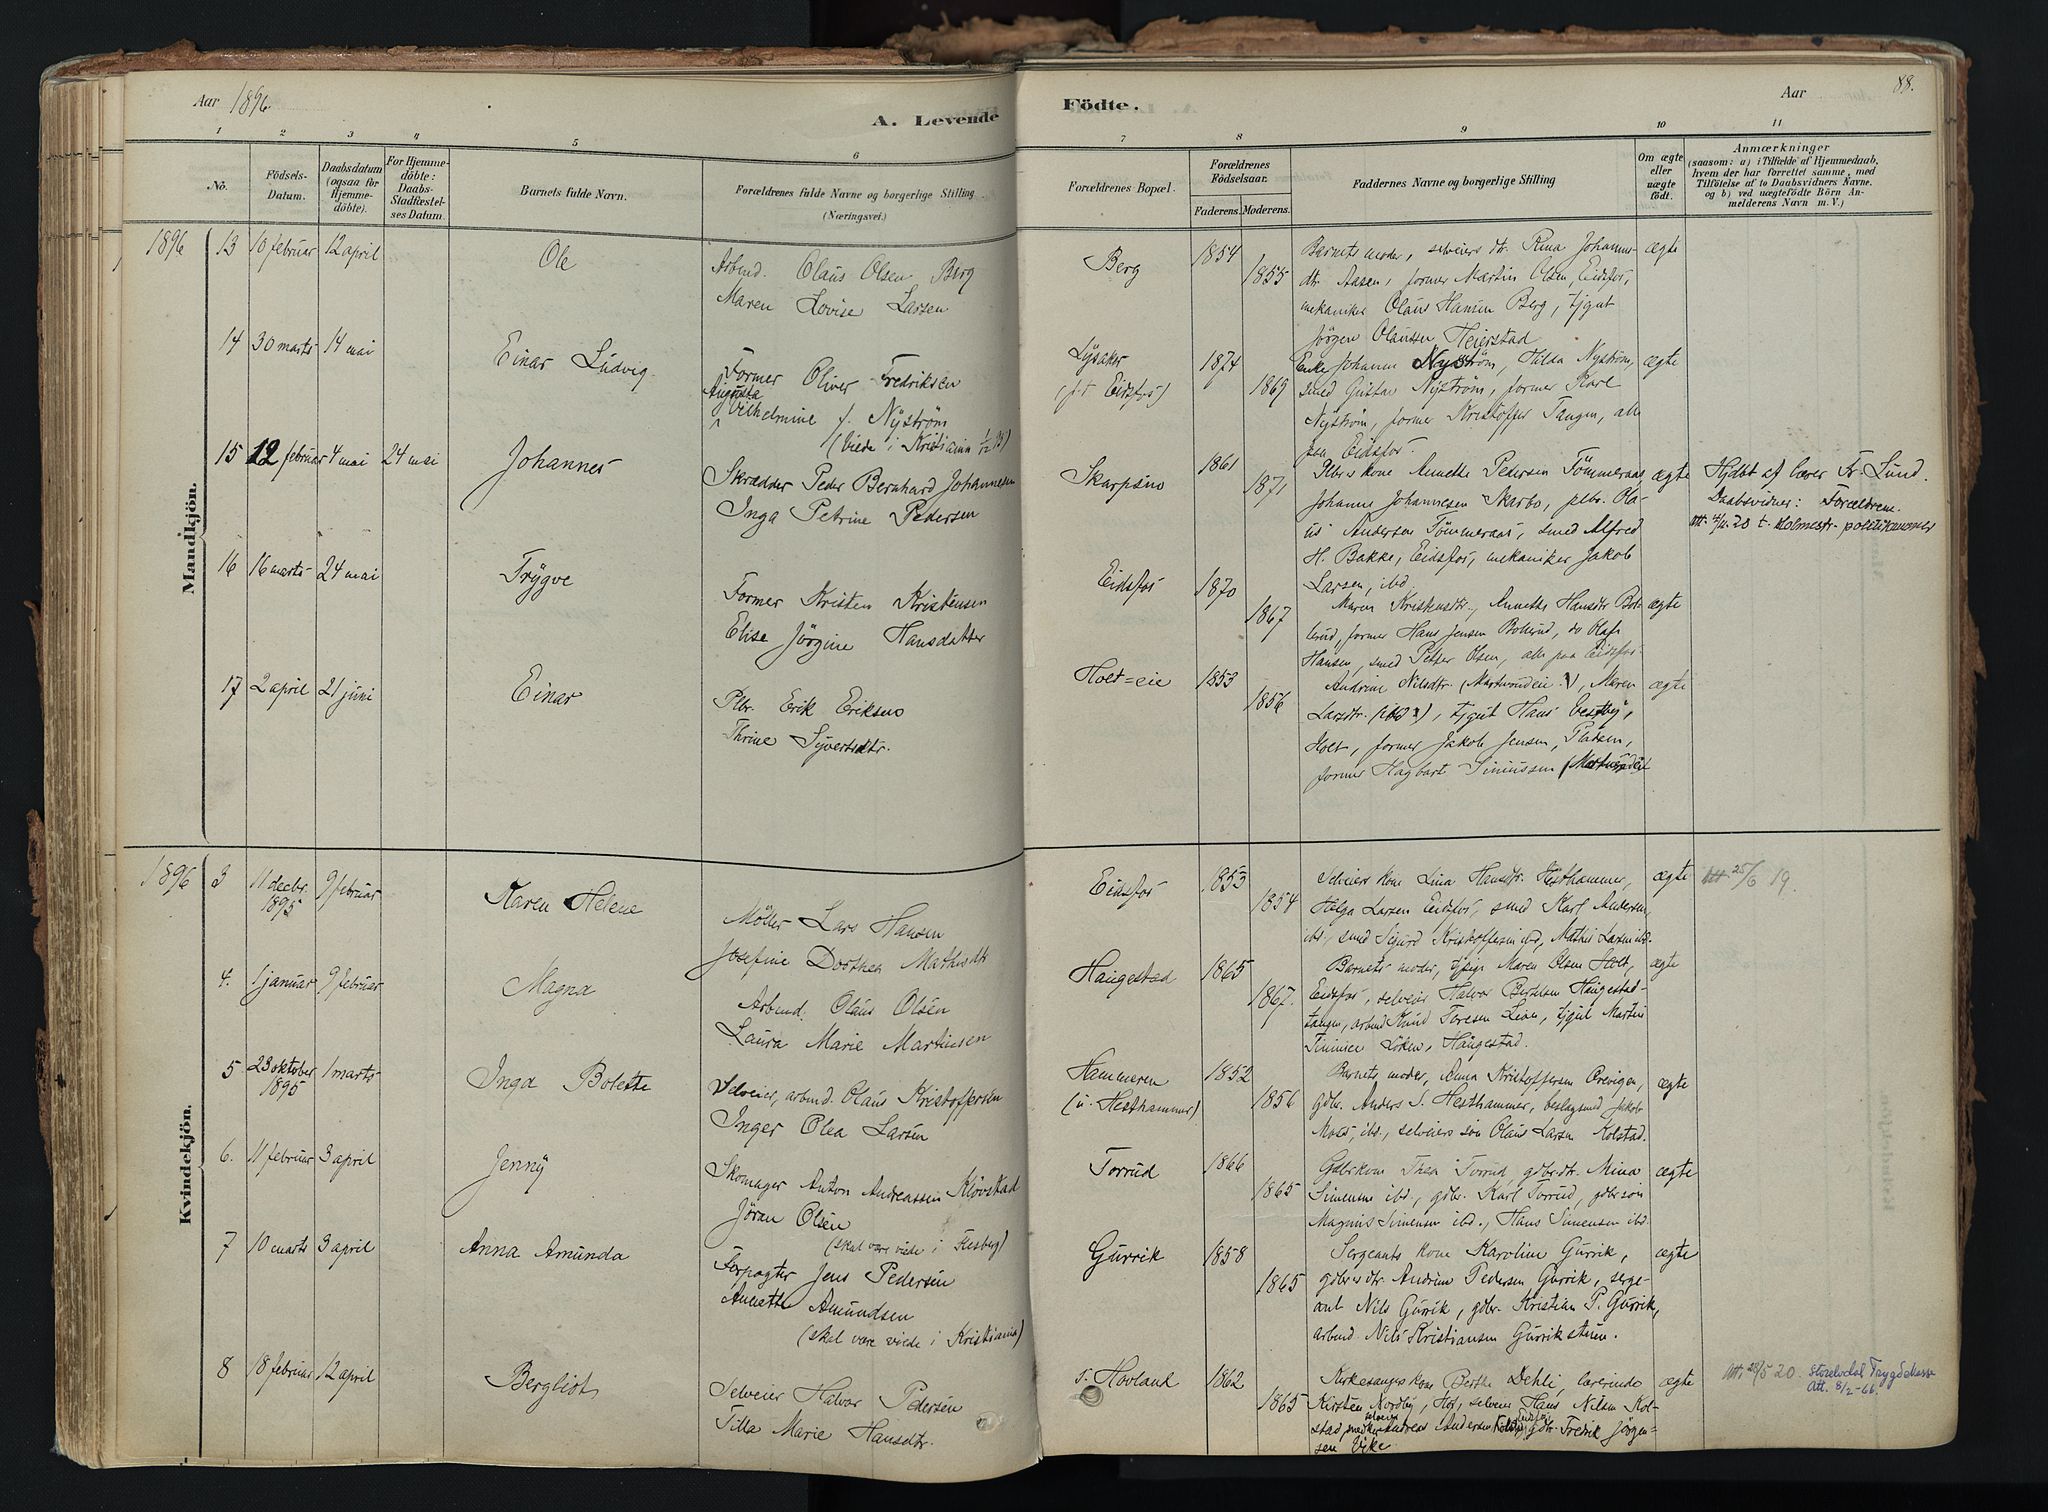 Aar 1896.
A. Levende
Födte.
Aar
88.
1 2 3 4 5 6 7 8 9 10 11
No.
Födsels-Datum.
Daabsdatum (ogsaa for Hjemme-döbte).
For Hjemme-döbte: Daabs-Stadfæstel-ses Datum.
Barnets fulde Navn.
Forældrenes fulde Navne og borgerlige Stilling (Næringsvei.)
Forældrenes Bopæl.
Forældrenes Födselsaar.
Faderens. Moderens.
Faddernes Navne og borgerlige Stilling
Om ægte eller uægte födt.
Anmærkninger
(saasom: a) i Tilfælde af Hjemmedaab,
hvem der har forrettet samme, med
Tilföielse af to Daabsvidners Navne.
og b) ved uægtefödte Börn An-
melderens Navn m. V.)
Mandkjön.
1896 13 10 februar 12 april Ole
Arbmd. Olaus Olsen Berg
Maren Lovise Larsen
Berg 1854 1855
Barnets moder, selveiers dtr. Rina Johanns-
dtr. Aasen, former Martin Olsen, Eidsfos,
mekaniker Olaus Hansen Berg, tjgut
Jörgen Olaussen Heierstad
ægte
14 30 marts 14 mai Einar Ludvig
Former Oliver Fredriksen
Augusta
Vilhelmine f. Nyström
(Viede i Kristiania 1/12 95)
Lysaker
(p.t. Eidsfos)
1874 1869
Enke Johanne Nyström, Hilda Nyström,
smed Gustav Nyström, former Karl
Nyström, former Kristoffer Tangen, alle
paa Eidsfos.
ægte
15 12 februar 4 mai 24 mai Johannes
Skrædder Peder Bernhard Johannesen
Inga Petrine Pedersen
Skarpsno 1861 1871
Plbrs kone Annette Pedersen Tömmeraas,
Johanne Johannesen Skarbo, plbr. Ola-
us Andersen Tömmeraas, smed Alfred
H. Bakke, Eidsfos, mekaniker Jakob
Larsen, ibd.
ægte
Hjdbt af lærer Fr. Lund.
Daabsvidner: Forældrene.
att. 4/11 20 t. Holmestr. politikammer
16 16 marts 24 mai Trygve
Former Kristen Kristensen
Elise Jörgine Hansdatter
Eidsfos 1870 1867
Maren Kristensdtr., Annette Hansdtr Bol-
lerud, former Hans Jensen Bollerud, do Olaf
Hansen, smed Petter Olsen, alle paa Eidsfos.
ægte
17 2 april 21 juni Einar
Plbr. Erik Eriksen
Thrine Syvertsdtr.
Holt=eie 1853 1856
Andrine Nilsdtr. Maren
Larsdtr. (ibd), tjgut Hans Vestby,
Holt, former Jakob Jensen, Pladsen,
former Hagbart Simussen
ægte
Kvindekjön.
1896 3 11 decbr. 1895 9 februar Karen Helene
Möller Lars Hansen
Josefine Dorthea Mathisdtr
Eidsfos 1853 1854
Selveiers kone Lina Hansdtr. Hesthammer,
Helga Larsen Eidsfos, smed Karl Andersen,
ibd., smed Sigurd Kristoffersen ibd, Mathis Larsen ibd.
ægte
Att 25/6 19.
4. 1 januar 9 februar Magna
Arbmd. Olaus Olsen
Laura Marie Martinsen
Haugestad 1865 1867.
Barnets moder, tjpige Maren Olsen Holt,
Eidsfos, selveier Halvor Berntsen Haugestad-
tangen, arbmd Knud Toresen Lian, tjgut Martin
Löken, Haugestad.
ægte
5 23 oktober 1895 1 marts Inga Bolette
Selveier, arbmd. Olaus Kristoffersen
Inger Olea Larsen
Hammeren
(u. Hesthammer)
1852 1856
Barnets moder, Anna Kristoffersen Orevigen,
gdbr. Anders S. Hesthammer, beslagsmd Jakob
Moss, ibd., selveiers søn Olaus Larsen Kolstad.
ægte
6. 11 februar 3 april Jenny
Skomager Anton Andreassen Klövstad
Jöran Olsen
(skal være viede i Fresberg)
Torrud 1866 1865
Gdbrkone Thea Torrud, gdbr.dtr. Mina
Simensen ibd., gdbr. Karl Torrud, gdbrsön
Magnus Simensen ibd., Hans Simensen ibd.
ægte
7 10 marts 3 april Anna Amunda
Forpagter Jens Pedersen
Annette Amundsen
(skal være viede i Kristiania)
Gurrik 1858 1865
Sergeants kone Karoline Gurrik,
gdbrs dtr. Andrine Pedersen Gurrik, serge-
ant Nils Gurrik, gdbr. Kristian P. Gurrik,
arbmd. Nils Kristiansen Gurrikstuen.
ægte
8 18 februar 12 april Bergliot
Selveier Halvor Pedersen
Tilla Marie Hansdtr.
s. Hovland 1862 1865
Kirkesangers kone Berthe Dehli, lærerinde
Kirsten Nordby, Hof, selveier Hans Nilsen Kol-
stad, Andreas Andersen gdbr. Fredrik Jörgen-
sen Vike.
ægte
Att. 28/5 20. Storelvdal Trygdekasse
Att. 8/2-66